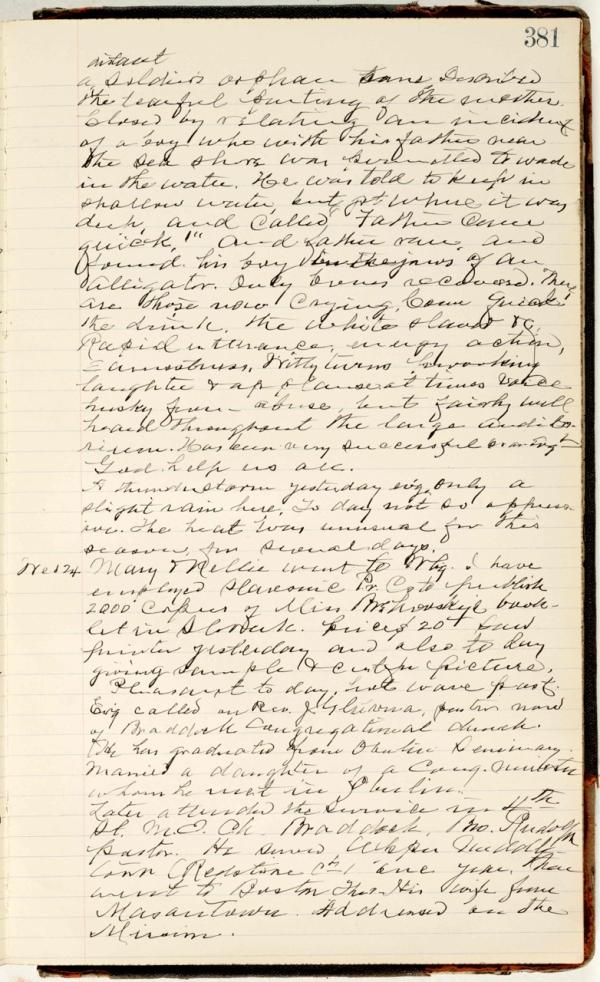 381
infant
a soldier's orphan tone Described
the tearful parting of the mother.
Closed by relating an incident
of a boy who with his father near
the sea shore was permitted to wade
in the water. He was told to keep in
shallow water, but got where it was
deep, and called "Father come
quick," and father ran and
found his boy in the jaws of an
alligator. Only bones recovered. There
are those now crying, Come quick
the drink, the white slaves &c.
Rapid utterance, energy action,
Earnestness, Witty turns provoking
laughter & applause at times Voice
husky from abuse, but fairly well
heard throughout the large audito-
rium. Has been very successful
God help us all.
A thunderstorm yesterday evg, only a
slight rain here, To day not so oppress-
ive. The heat was unusual for this
season, for several days.
Wed 24 Mary & Nellie went to I have
employed Slavonic Pr. Co to publish
2000 Copies of Miss book-
let in Slovak. price $20 Saw
printer yesterday and also to day
giving sample & cut for picture.
Pleasant to day, hot wave past.
Evg called on Rev. J. pastor now
of Braddock Congregational church.
He has graduated from Oberlin Seminary.
Married a daughter of a Cong. minister
whom he met in
Later attended the service in 4th
St. M. E. Ch. Braddock, Bro. Rudolph
pastor. He served Upper Middle-
town (Redstone Ct) one year, Then
went to Boston Thes. His wife from
Masontown. Addressed on the
Mission.